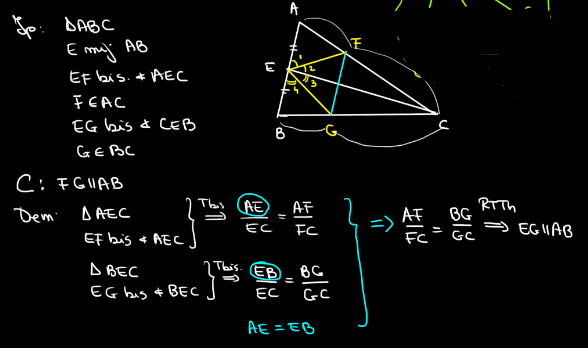 Ip: ΔABC
E mij AB
EF bis. ∢ AEC
F∈AC
EG bis ∢ CEB
G∈BC
A
F
E
1
2
3
4
B
G
C
C: FG∥AB
Dem: ΔAEC
EF bis ∢ AEC } Tbis ⇒ AE/EC = AF/FC
ΔBEC
EG bis ∢ BEC } Tbis. ⇒ EB/EC = BG/GC
AE = EB
} ⇒ AF/FC = BG/GC RTTh ⇒ EG∥AB